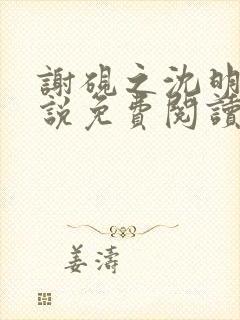 謝硯之沈明
說免費閱讀
姜濤